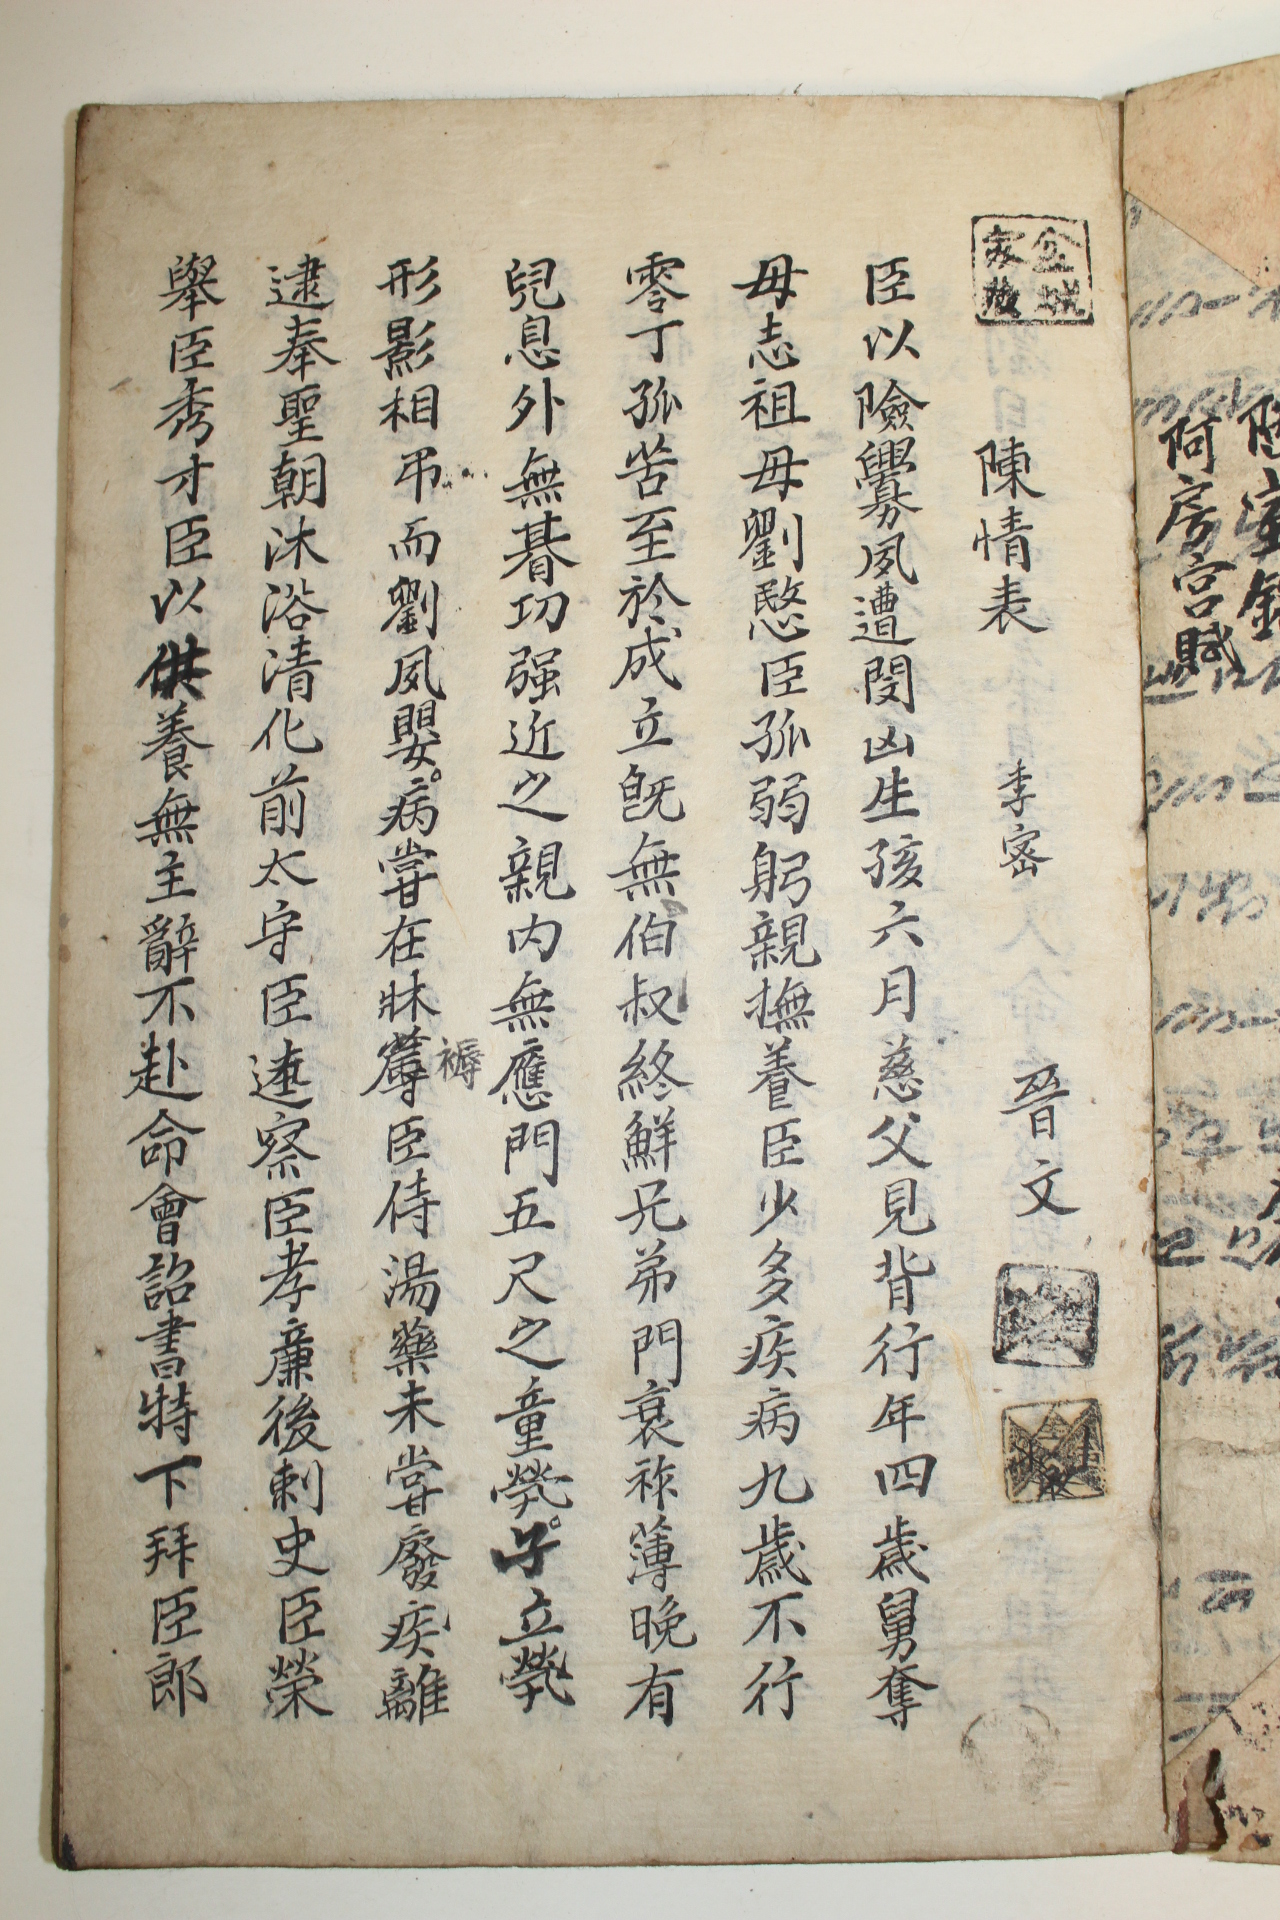 陳情表 李密 晉文
臣以險釁夙遭閔凶生孩六月慈父見背行年四歲舅奪
母志祖母劉愍臣孤弱躬親撫養臣少多疾病九歲不行
零丁孤苦至於成立旣無伯叔終鮮兄弟門衰祚薄晚有
兒息外無朞功强近之親內無應門五尺之童煢子立煢
形影相弔而劉夙嬰病嘗在牀蓐臣侍湯藥未嘗廢疾離
褥
逮奉聖朝沐浴清化前太守臣逵察臣孝廉後刺史臣榮
擧臣秀才臣以供養無主辭不赴命會詔書特下拜臣郎
阿房宮賦